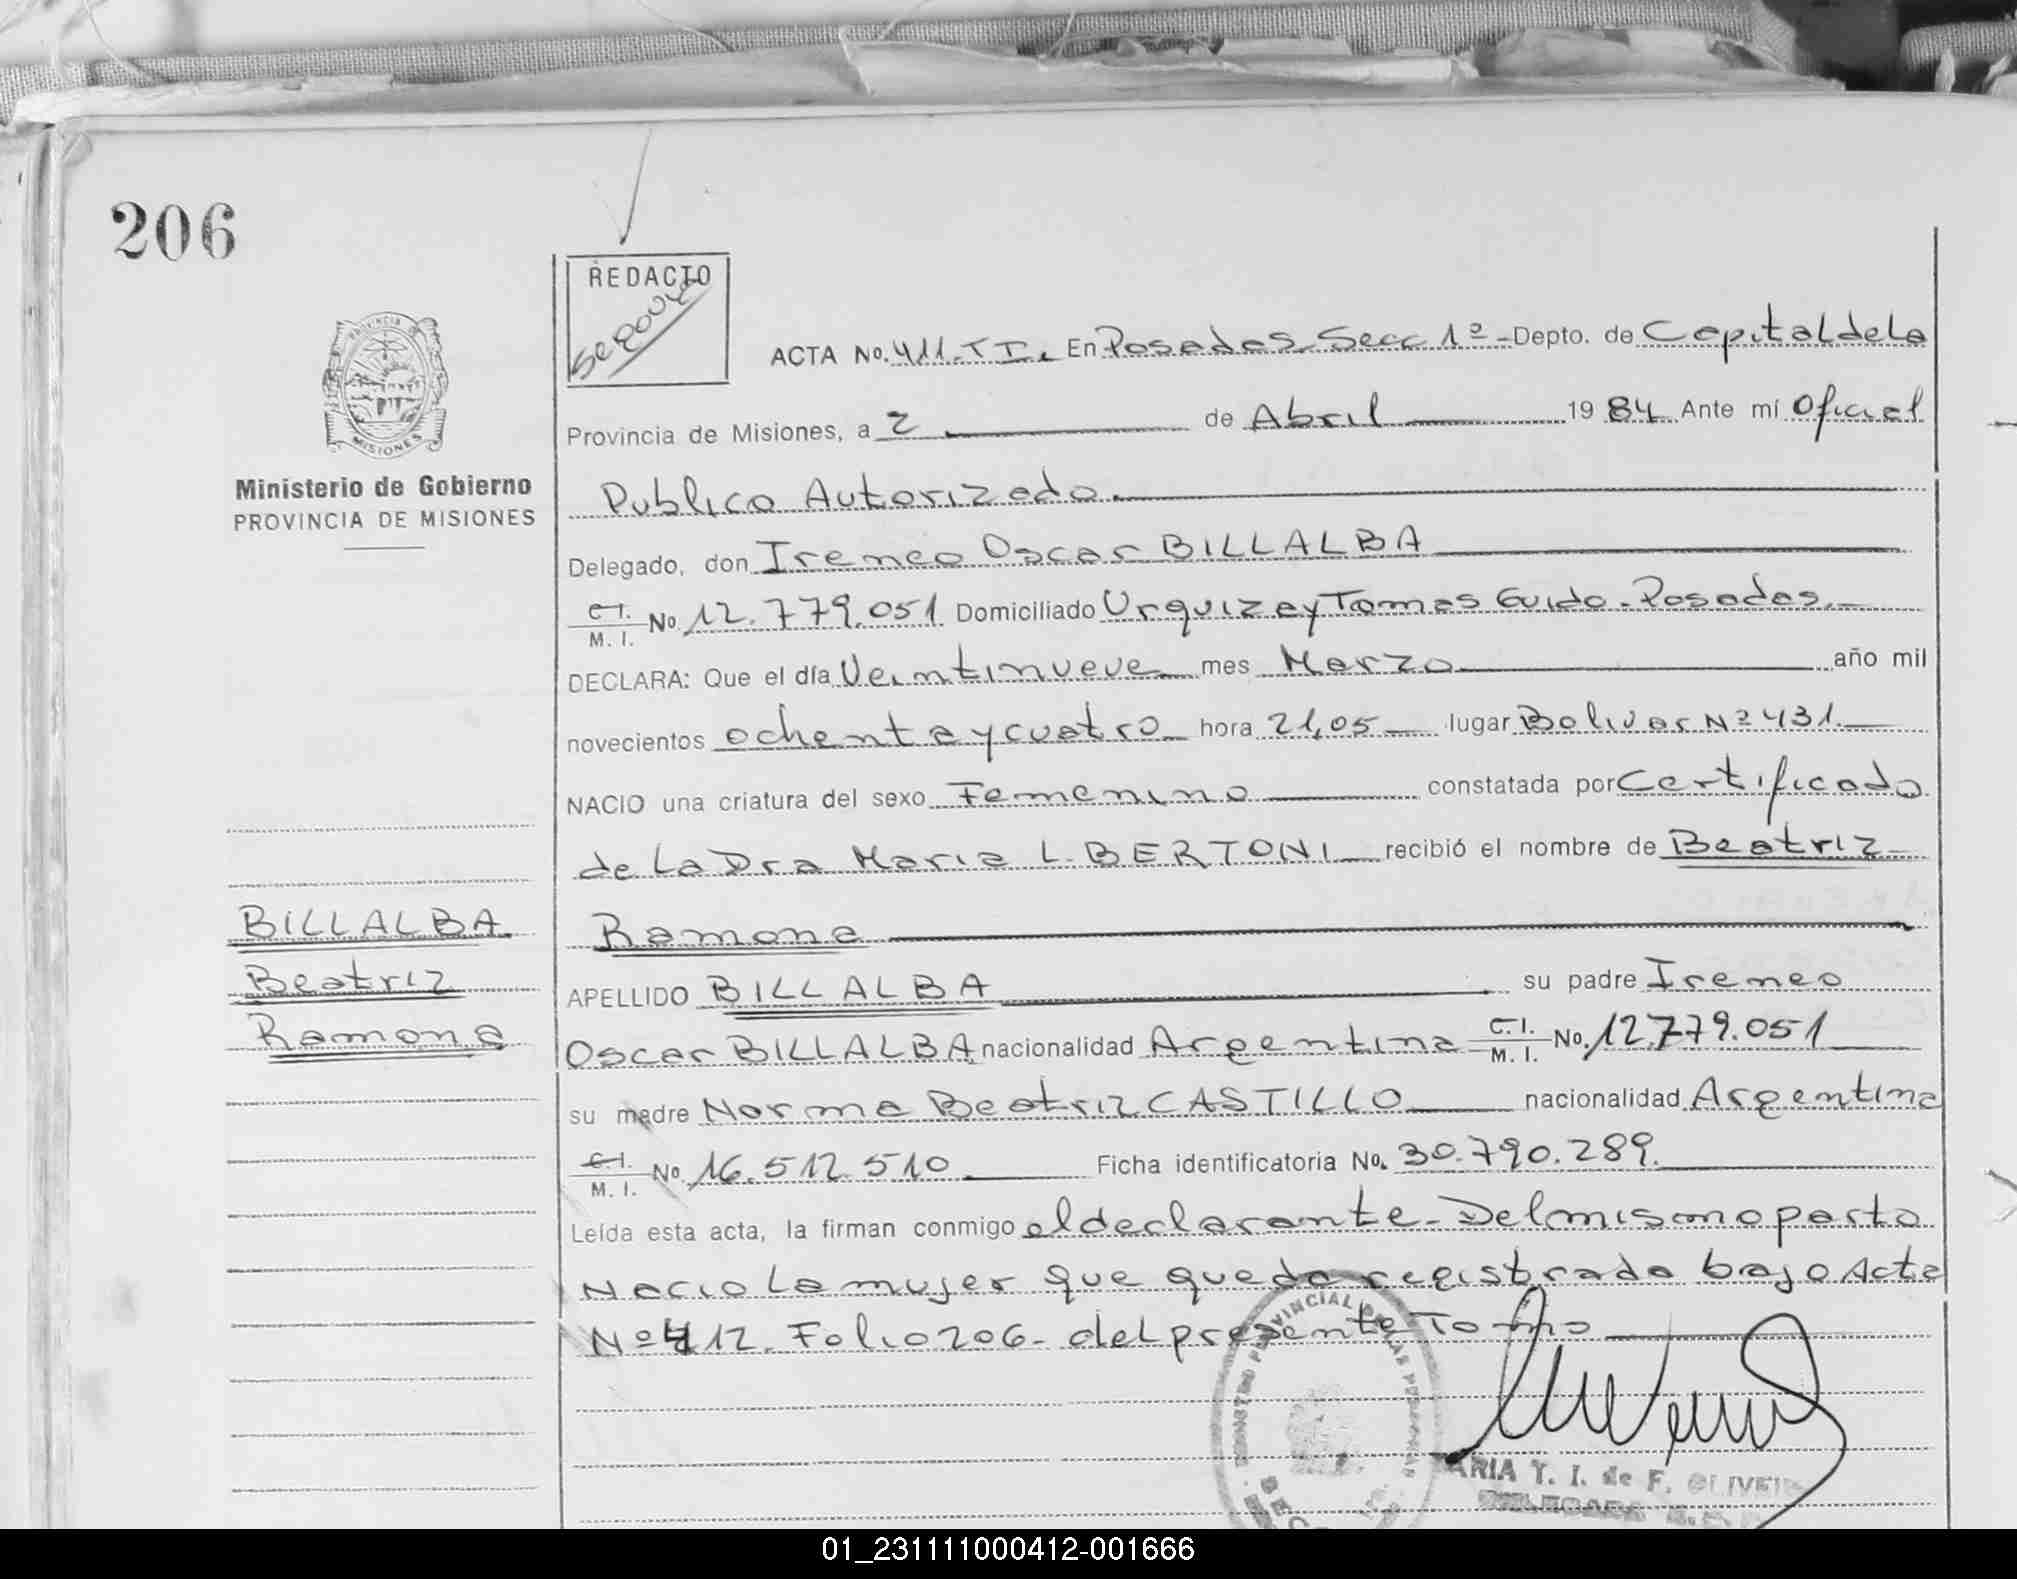 206
REDACTO
PROVINCIA DE
MISIONES
Ministerio de Gobierno
PROVINCIA DE MISIONES
ACTA No. 411. T I. En Posadas Secc 1ª - Depto. de Capital de La
Provincia de Misiones, a 2 de Abril 1984 Ante mí Oficial
Publico Autorizado.
Delegado, don Ireneo Oscar BILLALBA
C.I. M. I. No. 12.779.051 Domiciliado Urquiza y Tomas Guido. Posadas.
DECLARA: Que el día Veintinueve mes Marzo año mil
novecientos ochenta y cuatro hora 21,05 lugar Bolivar Nº 431.
NACIO una criatura del sexo Femenino constatada por Certificado
de La Dra Maria L. BERTONI recibió el nombre de Beatriz
Ramona
APELLIDO BILLALBA su padre Ireneo
Oscar BILLALBA nacionalidad Argentina C.I. M. I. No. 12.779.051
su madre Norma Beatriz CASTILLO nacionalidad Argentina
C.I. M. I. No. 16.512.510 Ficha identificatoria No. 30.790.289.
Leída esta acta, la firman conmigo el declarante. Del mismo parto
Nacio La mujer que queda registrada bajo Acta
Nº 412. Folio 206 - del presente Tomo
BILLALBA
Beatriz
Ramona
ARIA Y. I. de F. OLIVEI
01_231111000412-001666